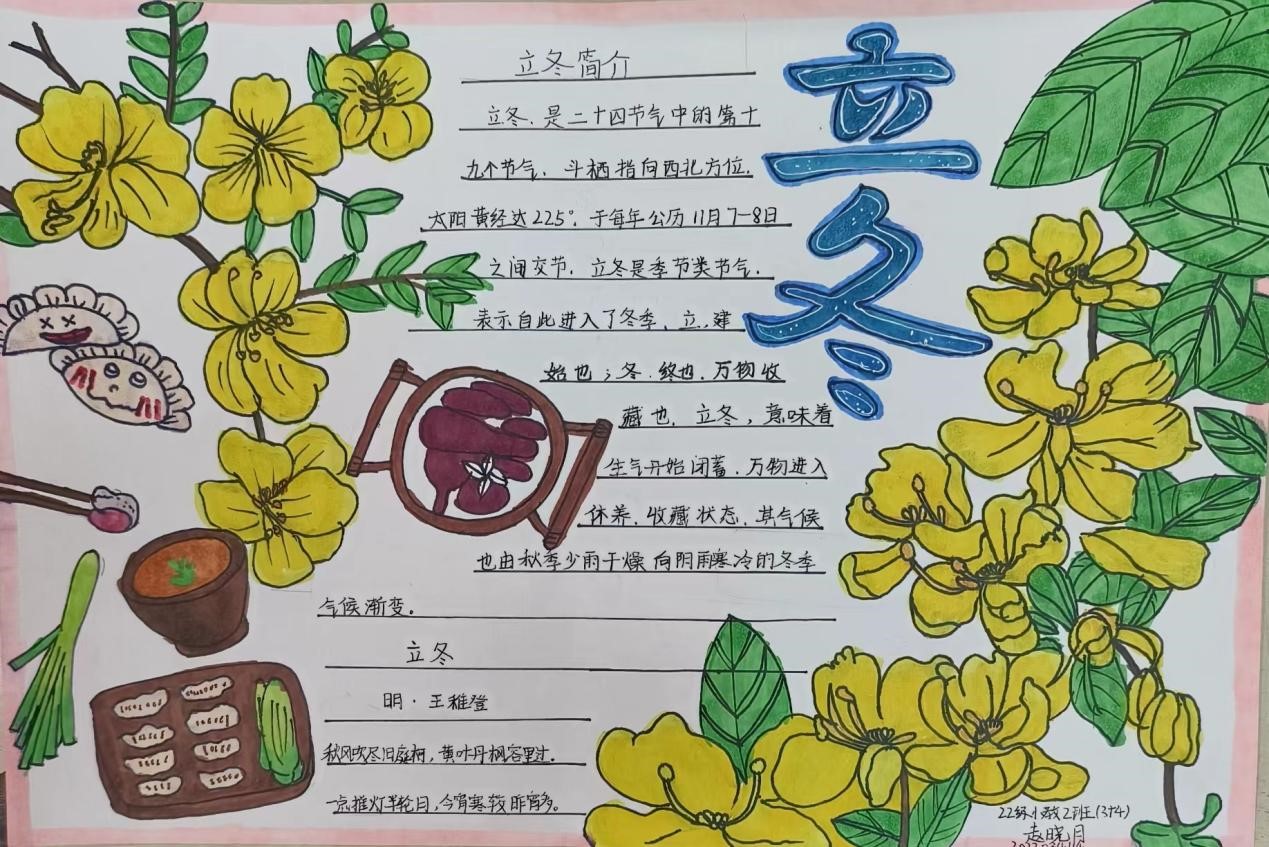 立冬
立冬简介
立冬、是二十四节气中的第十
九个节气、斗栖指向西北方位.
太阳黄经达225°.于每年公历11月7-8日
之间交节.立冬是季节类节气.
表示自此进入了冬季.立,建
始也;冬.终也.万物收
藏也.立冬,意味着
生气开始闭蓄.万物进入
休养.收藏状态.其气候
也由秋季少雨干燥向阴雨寒冷的冬季
气候渐变。
立冬
明·王稚登
秋风吹尽旧庭柯,黄叶丹枫客里过.
一点推灯半轮日,今宵寒较昨宵多。
22级小教2班(3+4)
赵晓月